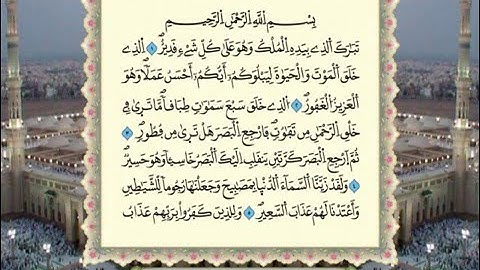 بِسْمِ اللَّهِ الرَّحْمَٰنِ الرَّحِيمِ
تَبَٰرَكَ الَّذِے بِيَدِهِ الْمُلْكُ وَهُوَ عَلَىٰ كُلِّ شَےْءٖ قَدِيرٌ ١ اِلذِے
خَلَقَ الْمَوْتَ وَالْحَيَوٰةَ لِيَبْلُوَكُمُۥٓ أَيُّكُمُۥٓ أَحْسَنُ عَمَلاٗ وَهُوَ
اَلْعَزِيزُ الْغَفُورُ ٢ اُلذِے خَلَقَ سَبْعَ سَمَٰوَٰتٖ طِبَاقاٗ مَّا تَرَىٰ فِے
خَلْقِ الرَّحْمَٰنِ مِن تَفَٰوُتٖ فَارْجِعِ الْبَصَرَ هَلْ تَرَىٰ مِن فُطُورٖ ٣
ثُمَّ اَرْجِعِ الْبَصَرَ كَرَّتَيْنِ يَنقَلِبِ اِلَيْكَ الْبَصَرُ خَاسِئاٗ وَهُوَ حَسِيرٌ
٤ وَلَقَدْ زَيَّنَّا السَّمَآءَ الدُّنْيا بِمَصَٰبِيحَ وَجَعَلْنَٰهَا رُجُوماٗ لِّلشَّيَٰطِينِ
وَأَعْتَدْنَا لَهُمْ عَذَابَ السَّعِيرِ ٥ وَلِلذِينَ كَفَرُوا۟ بِرَبِّهِمْ عَذَابُ